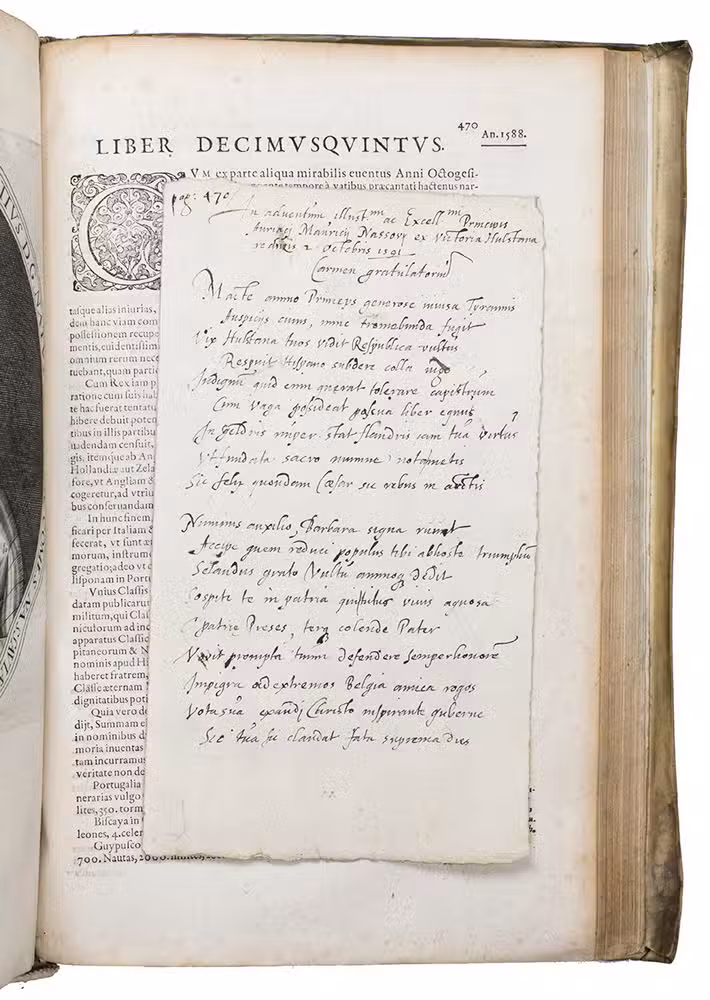 470 An. 1588.
LIBER DECIMVSQVINTVS.
CVM ex parte aliqua mirabilis euentus Anni Octogesi-
tempore à vatibus præcantati hactenus nar-
pag: 470
In adventum illust.m ac Excell.mi Principis
Auriaci Mauricij Nassovij ex Victoria Hulstana
reducis 2 Octobris 1591
Carmen gratulatoriũ
Macte animo Princeps generose invisa Tyrannis
Auspicijs cuius, nunc fugit
Vix Hulstana tuos vidit Respublica vultus
Respuit Hispano subdere colla iugo
Indignum quid enim querat tolerare capistrum
Cum vaga possideat pascua liber equus
In geldris nuper stat flandris iam tua virtus
sacro numine
Sic felix quondam Cæsar sic rebus in arctis
Numinis auxilio, Barbara signa ruunt
Accipe quem reduci populus tibi ab hoste triumphũ
Selandus grato Vultu animoq dedit
te in patria viuis
patrię Preses, colende Pater
Novit prompta tuum defendere semper honorẽ
Impigra ad extremos Belgia amica rogos
Vota sua exaudi Christo inspirante guberna
Sic tua sic claudat fata suprema dies
tasque alias iniurias,
dem hanc viam com
possessionem recupe
mentis, euidentissim
omnium rerum nece
tuebant, quam partic
Cum Rex iam p
ratione cum suis hab
te hac fuerat tentatu
hibere debuit poten
tibus in illis partibu
uadendam censuit,
gis. itemque ab An
Hollandiæ aut Zela
fore, vt Angliam &
cogeretur, ad vtriu
bus conseruandam
In hunc finem,
ficari per Italiam &
fecerat, vt sunt æ
morum, instrume
gregatio; adeo vt e
lisponam in Port
Vnius Classis
datam publicatur
militum, qui Cla
niculorum ad in
apparatus Classic
pitaneorum & N
nominis apud Hi
haberet fratrem,
Classē æternam
dignitatibus poti
Quia vero de
dijt, Summam e
in nominibus d
moria inuentas
tam incurramus
veritate non de
Portugalia
nerarias vulgo
lites, 350. torm
Biscaya in
leones, 4. celer
Guypusco
700. Nautas, 2000.